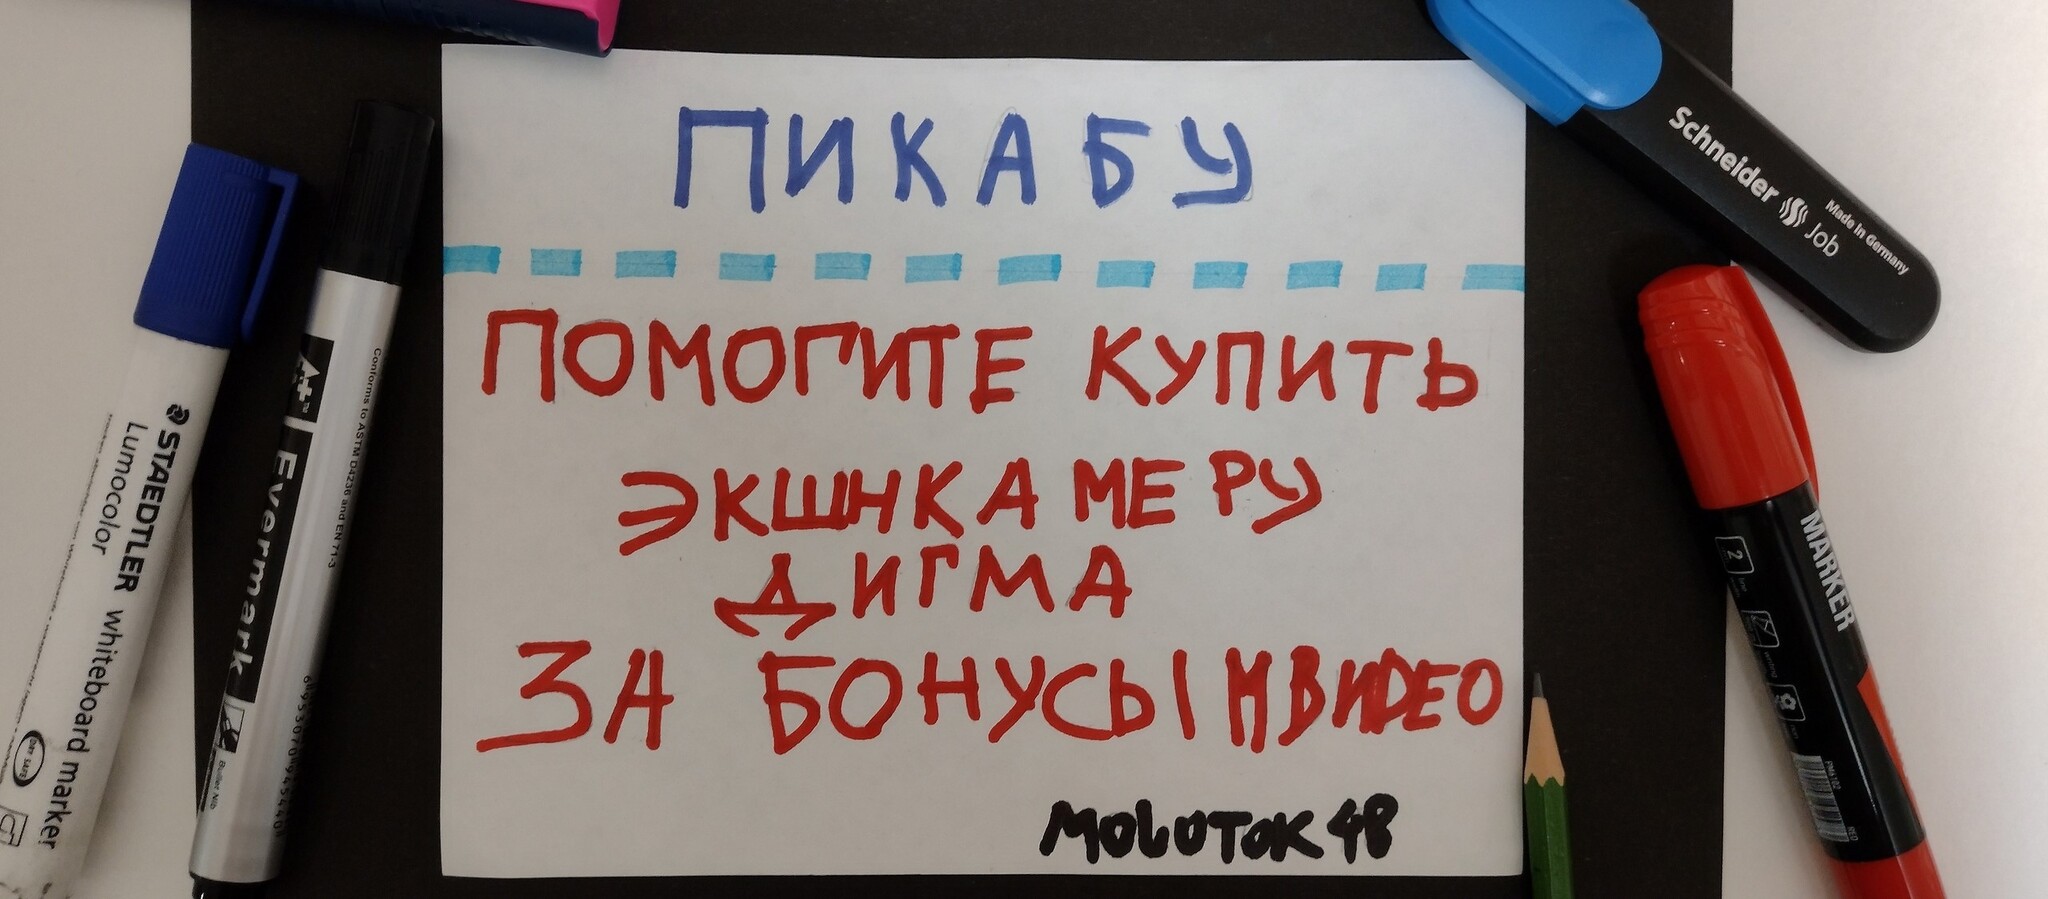 ПИКАБУ
ПОМОГИТЕ КУПИТЬ
ЭКШНКАМЕРУ
ДИГМА
ЗА БОНУСЫ МВИDEO
MOLOTOK 48
STAEDTLER
Lumocolor whiteboard marker
DRY SAFE
A+
Evermark
Conforms to ASTM D4236 and EN 713
Bullet Nib
Schneider Job
Made in Germany
MARKER
2
RED